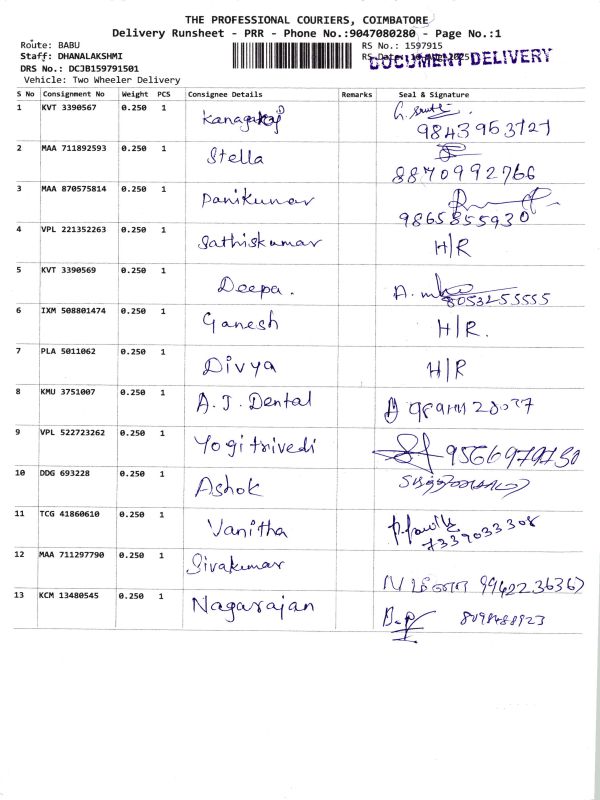 THE PROFESSIONAL COURIERS, COIMBATORE
Delivery Runsheet - PRR - Phone No.:9047080280 - Page No.:1
Route: BABU
RS No.: 1597915
Staff: DHANALAKSHMI
RS Date:
DOCUMENT DELIVERY
DRS No.: DCJB159791501
Vehicle: Two Wheeler Delivery
S No Consignment No Weight PCS Consignee Details Remarks Seal & Signature
1 KVT 3390567 0.250 1 Kanagaraj 9843953727
2 MAA 711892593 0.250 1 Stella 8870992766
3 MAA 870575814 0.250 1 Panikumar 9865855930
4 VPL 221352263 0.250 1 Sathiskumar H/R
5 KVT 3390569 0.250 1 Deepa. 8053255555
6 IXM 508801474 0.250 1 Ganesh H/R.
7 PLA 5011062 0.250 1 Divya H/R
8 KMU 3751007 0.250 1 A.J. Dental
9 VPL 522723262 0.250 1 Yogitrivedi 9566979730
10 DDG 693228 0.250 1 Ashok
11 TCG 41860610 0.250 1 Vanitha 7339033308
12 MAA 711297790 0.250 1 Sivakumar 9942236367
13 KCM 13480545 0.250 1 Nagarajan 8098488923